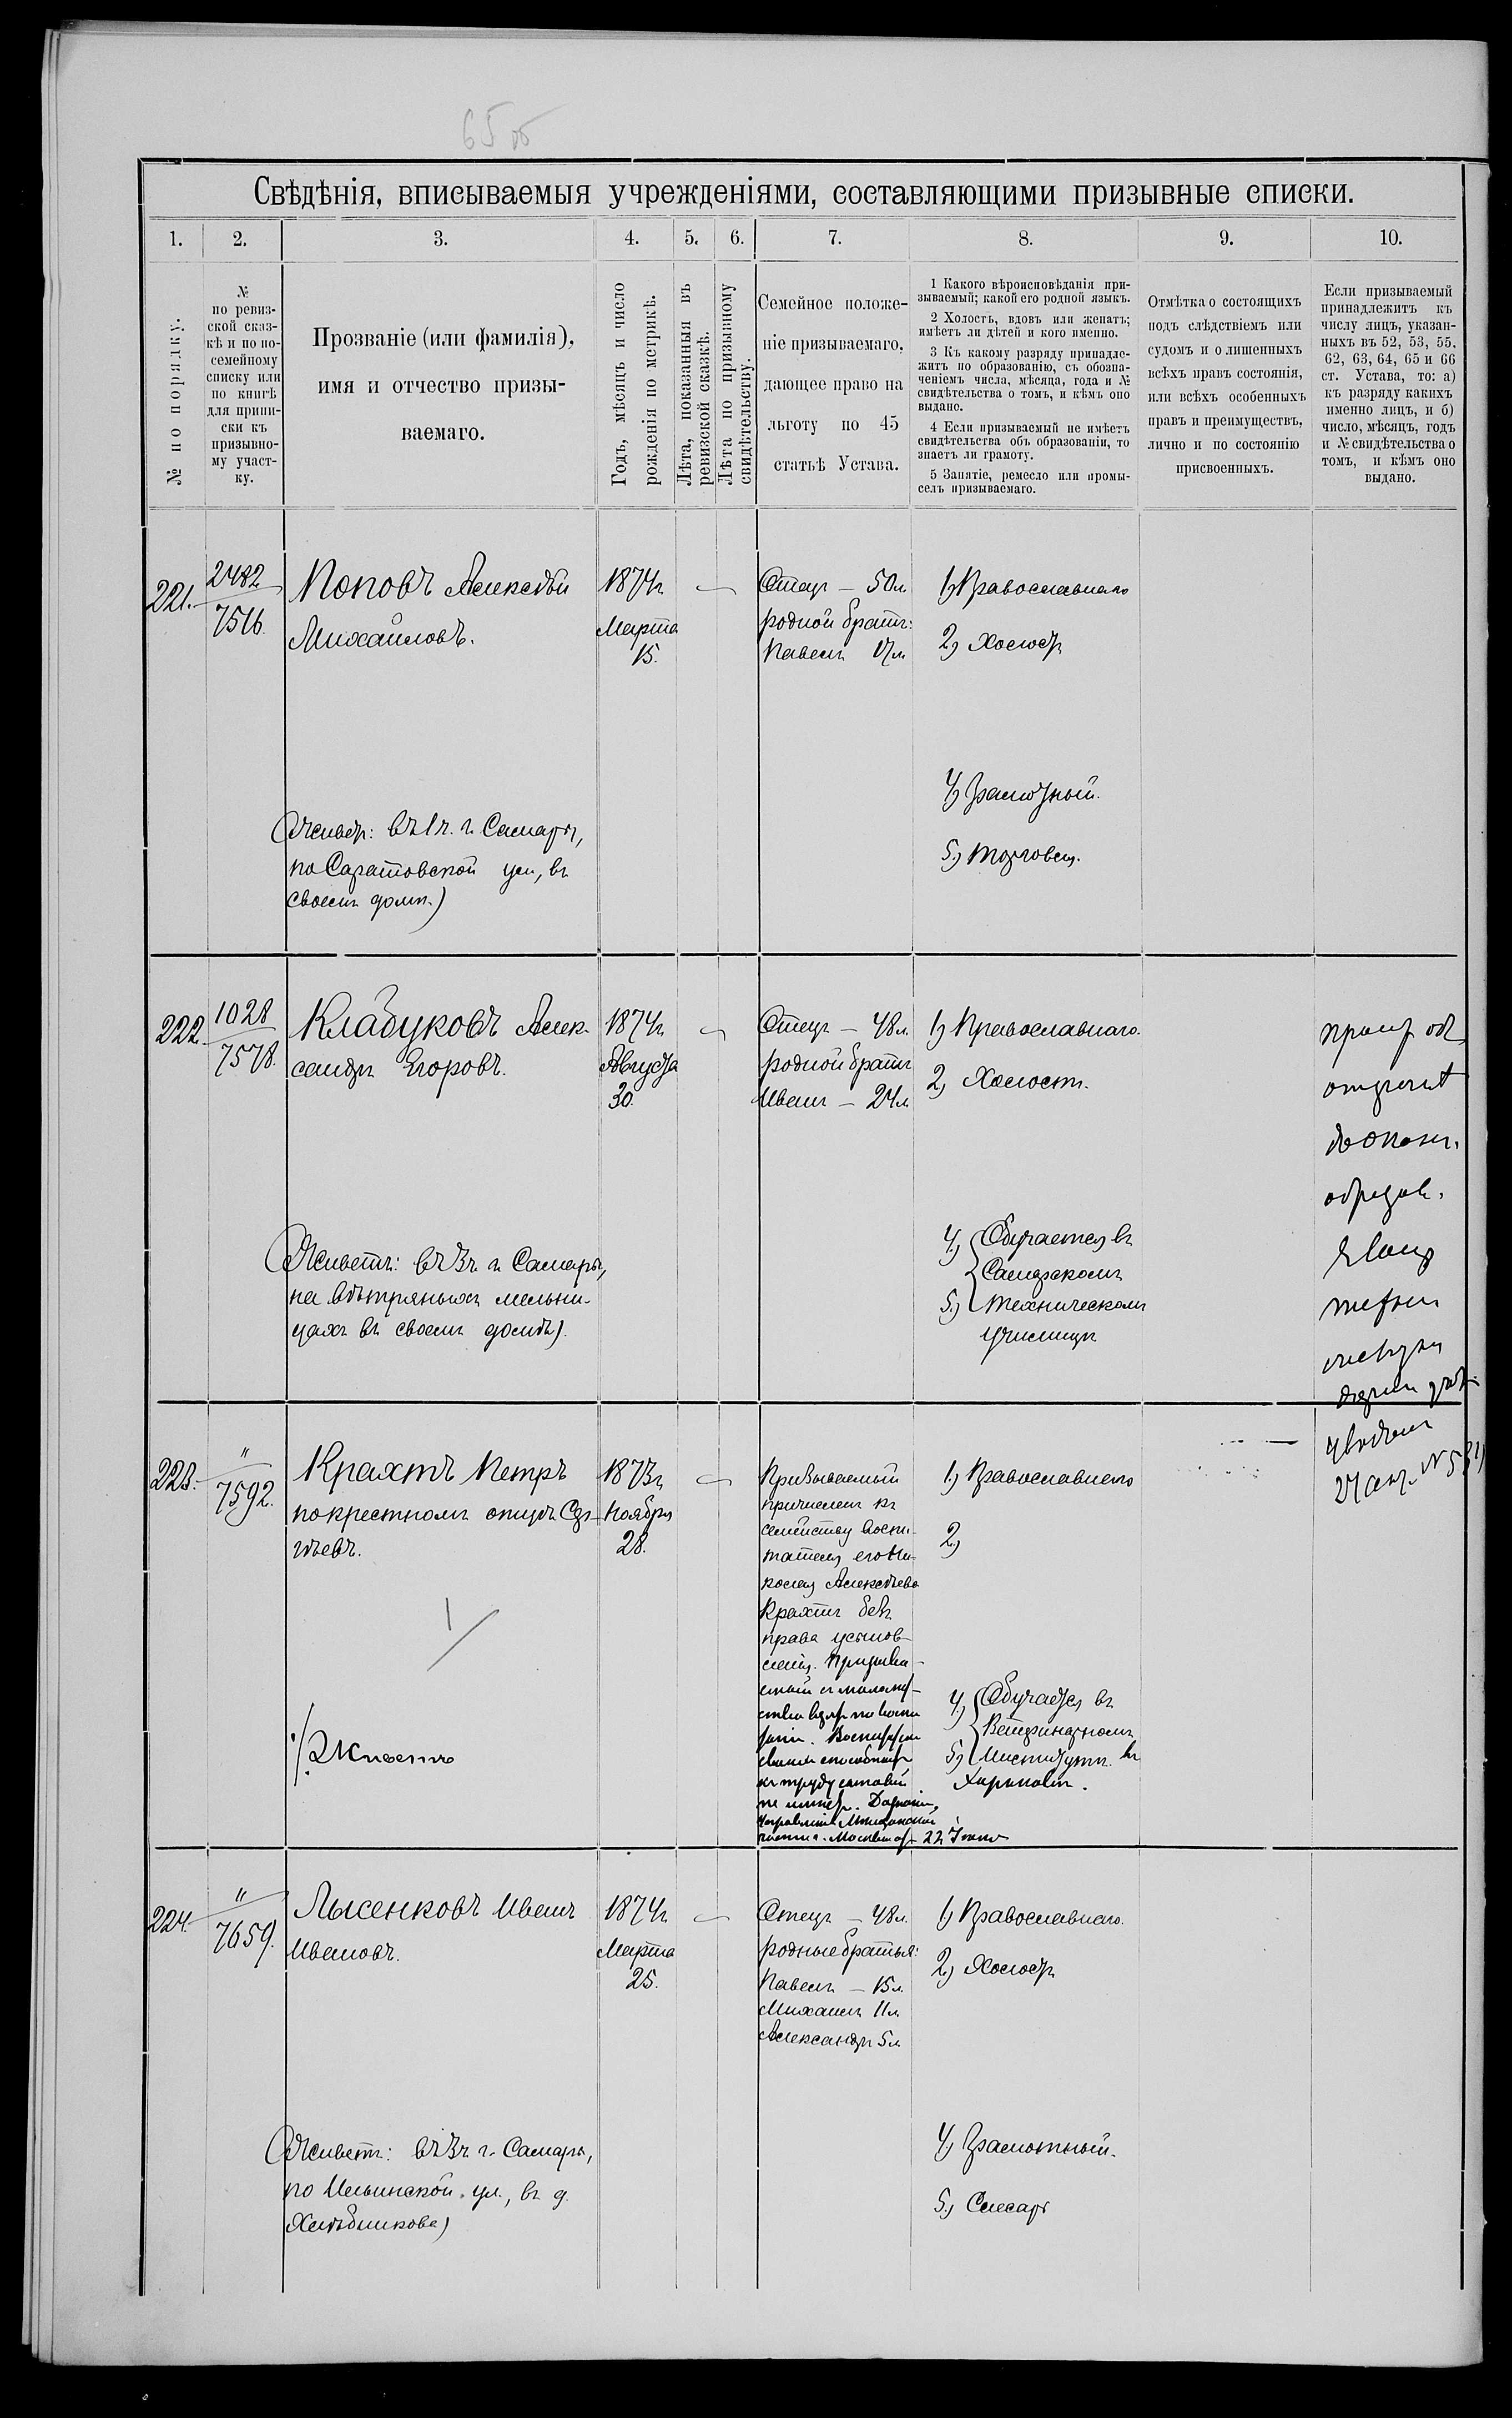 65 об
Свѣдѣнія, вписываемыя учрежденіями, составляющими призывные списки.
1. 2. 3. 4. 5. 6. 7. 8. 9. 10.
№ по порядку.
№
по ревиз-
ской сказ-
кѣ и по по-
семейному
списку или
по книгѣ
для припи-
ски къ
призывно-
му участ-
ку.
Прозваніе (или фамилія),
имя и отчество призы-
ваемаго.
Годъ, мѣсяцъ и число
рожденія по метрикѣ.
Лѣта, показанныя въ
ревизской сказкѣ.
Лѣта по призывному
свидѣтельству.
Семейное положе-
ніе призываемаго,
дающее право на
льготу по 45
статьѣ Устава.
1 Какого вѣроисповѣданія при-
зываемый; какой его родной языкъ.
2 Холостъ, вдовъ или женатъ;
имѣетъ ли дѣтей и кого именно.
3 Къ какому разряду принадле-
житъ по образованію, съ обозна-
ченіемъ числа, мѣсяца, года и №
свидѣтельства о томъ, и кѣмъ оно
выдано.
4 Если призываемый не имѣетъ
свидѣтельства объ образованіи, то
знаетъ ли грамоту.
5 Занятіе, ремесло или промы-
селъ призываемаго.
Отмѣтка о состоящихъ
подъ слѣдствіемъ или
судомъ и о лишенныхъ
всѣхъ правъ состоянія,
или всѣхъ особенныхъ
правъ и преимуществъ,
лично и по состоянію
присвоенныхъ.
Если призываемый
принадлежитъ къ
числу лицъ, указан-
ныхъ въ 52, 53, 55,
62, 63, 64, 65 и 66
ст. Устава, то: а)
къ разряду какихъ
именно лицъ, и б)
число, мѣсяцъ, годъ
и № свидѣтельства о
томъ, и кѣмъ оно
выдано.
221.
2482
7516.
Поповъ Алексѣй
Михайловъ.
(Живетъ: въ 1 ч. г. Самары,
по Саратовской ул., въ
своемъ домѣ.)
1874 г.
Марта
15.
Отецъ – 50 л.
родной братъ:
Павелъ 17 л.
1) Православнаго
2) Холостъ
4) Грамотный.
5) Торговец.
222.
1028
7578.
Кладуковъ Алек-
сандръ Егоровъ.
(Живетъ: въ 3 ч. г. Самары,
на вѣтряныхъ мельни-
цахъ въ своемъ домѣ).
1874 г.
Августа
30.
Отецъ – 48 л.
родной братъ
Иванъ – 24 л.
1) Православнаго.
2) Холостъ.
4) Обучается въ
Самарскомъ
5) техническомъ
училищѣ
до оконч.
образов.
№ 531)
223.
"
7592.
Крахтъ Петръ
по крестному отцу Сер-
гѣевъ.
1873 г.
Ноября
28.
Призываемый
причисленъ къ
семейству воспи-
тателя его Ни-
колая Алексѣева
Крахтъ безъ
права усынов-
ленія. Призыва-
емый съ малолѣт-
ства
къ труду сыновей
не имѣетъ.
22 Іюня
1) Православнаго
2)
4) Обучается въ
Ветеринарномъ
5) Институтѣ въ
Харьковѣ.
224.
"
7659.
Лысенковъ Иванъ
Ивановъ.
(Живетъ: въ 3 ч. г. Самары,
по Ильинской ул., въ д.
Хлѣбникова)
1874 г.
Марта
25.
Отецъ – 48 л.
родные братья:
Павелъ – 15 л.
Михаилъ 11 л.
Александръ 5 л.
1) Православнаго.
2) Холостъ
4) Грамотный.
5) Слесарь